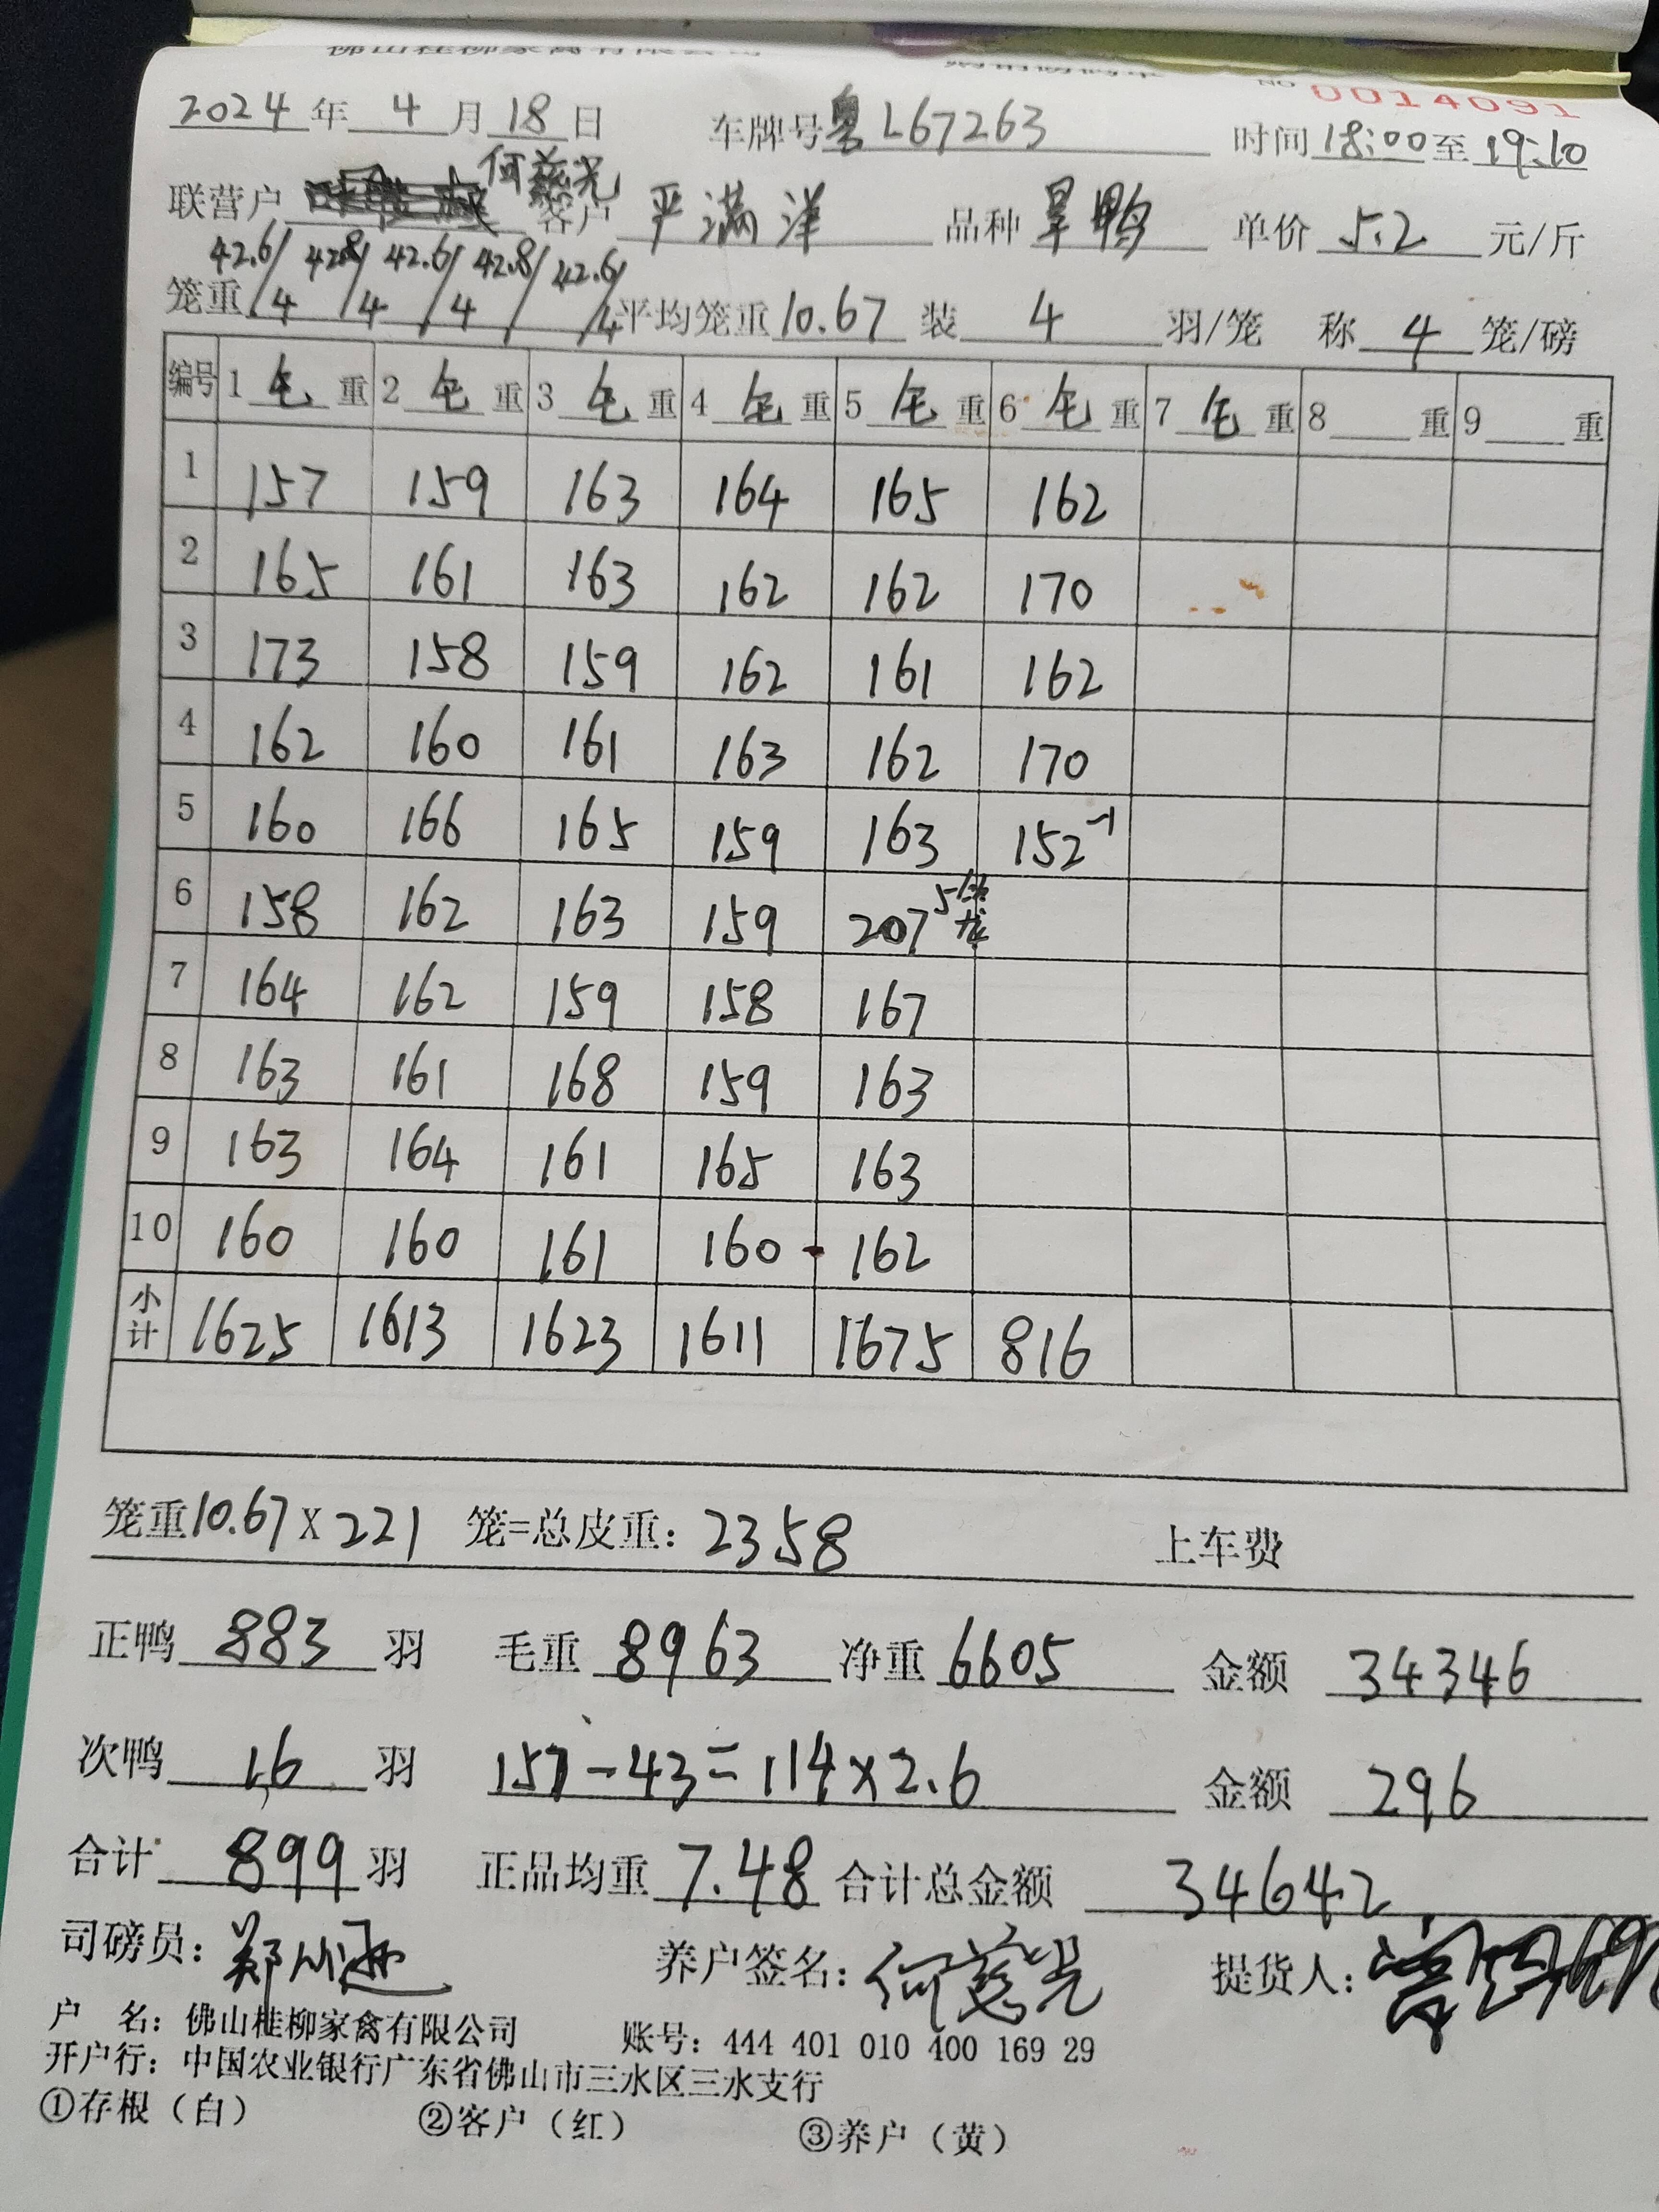 佛山桂柳家禽有限公司
No 0014091
2024年4月18日 车牌号粤L67263 时间18:00至19:10
何慈光
联营户 客户 严满洋 品种 旱鸭 单价 5.2 元/斤
42.6/4 42.8/4 42.6/4 42.8/ 42.6/4
笼重 平均笼重10.67 装 4 羽/笼 称 4 笼/磅
编号 1毛重 2毛重 3毛重 4毛重 5毛重 6毛重 7毛重 8重 9重
1 157 159 163 164 165 162
2 165 161 163 162 162 170
3 173 158 159 162 161 162
4 162 160 161 163 162 170
5 160 166 165 159 163 152-1
6 158 162 163 159 207 5
7 164 162 159 158 167
8 163 161 168 159 163
9 163 164 161 165 163
10 160 160 161 160 162
小计 1625 1613 1623 1611 1675 816
笼重10.67X221 笼=总皮重: 2358 上车费
正鸭 883 羽 毛重 8963 净重 6605 金额 34346
次鸭 16 羽 157-43=114×2.6 金额 296
合计 899 羽 正品均重 7.48 合计总金额 34642
司磅员: 养户签名: 何慈光 提货人:
户 名: 佛山桂柳家禽有限公司 账号: 444 401 010 400 169 29
开户行: 中国农业银行广东省佛山市三水区三水支行
①存根（白） ②客户（红） ③养户（黄）